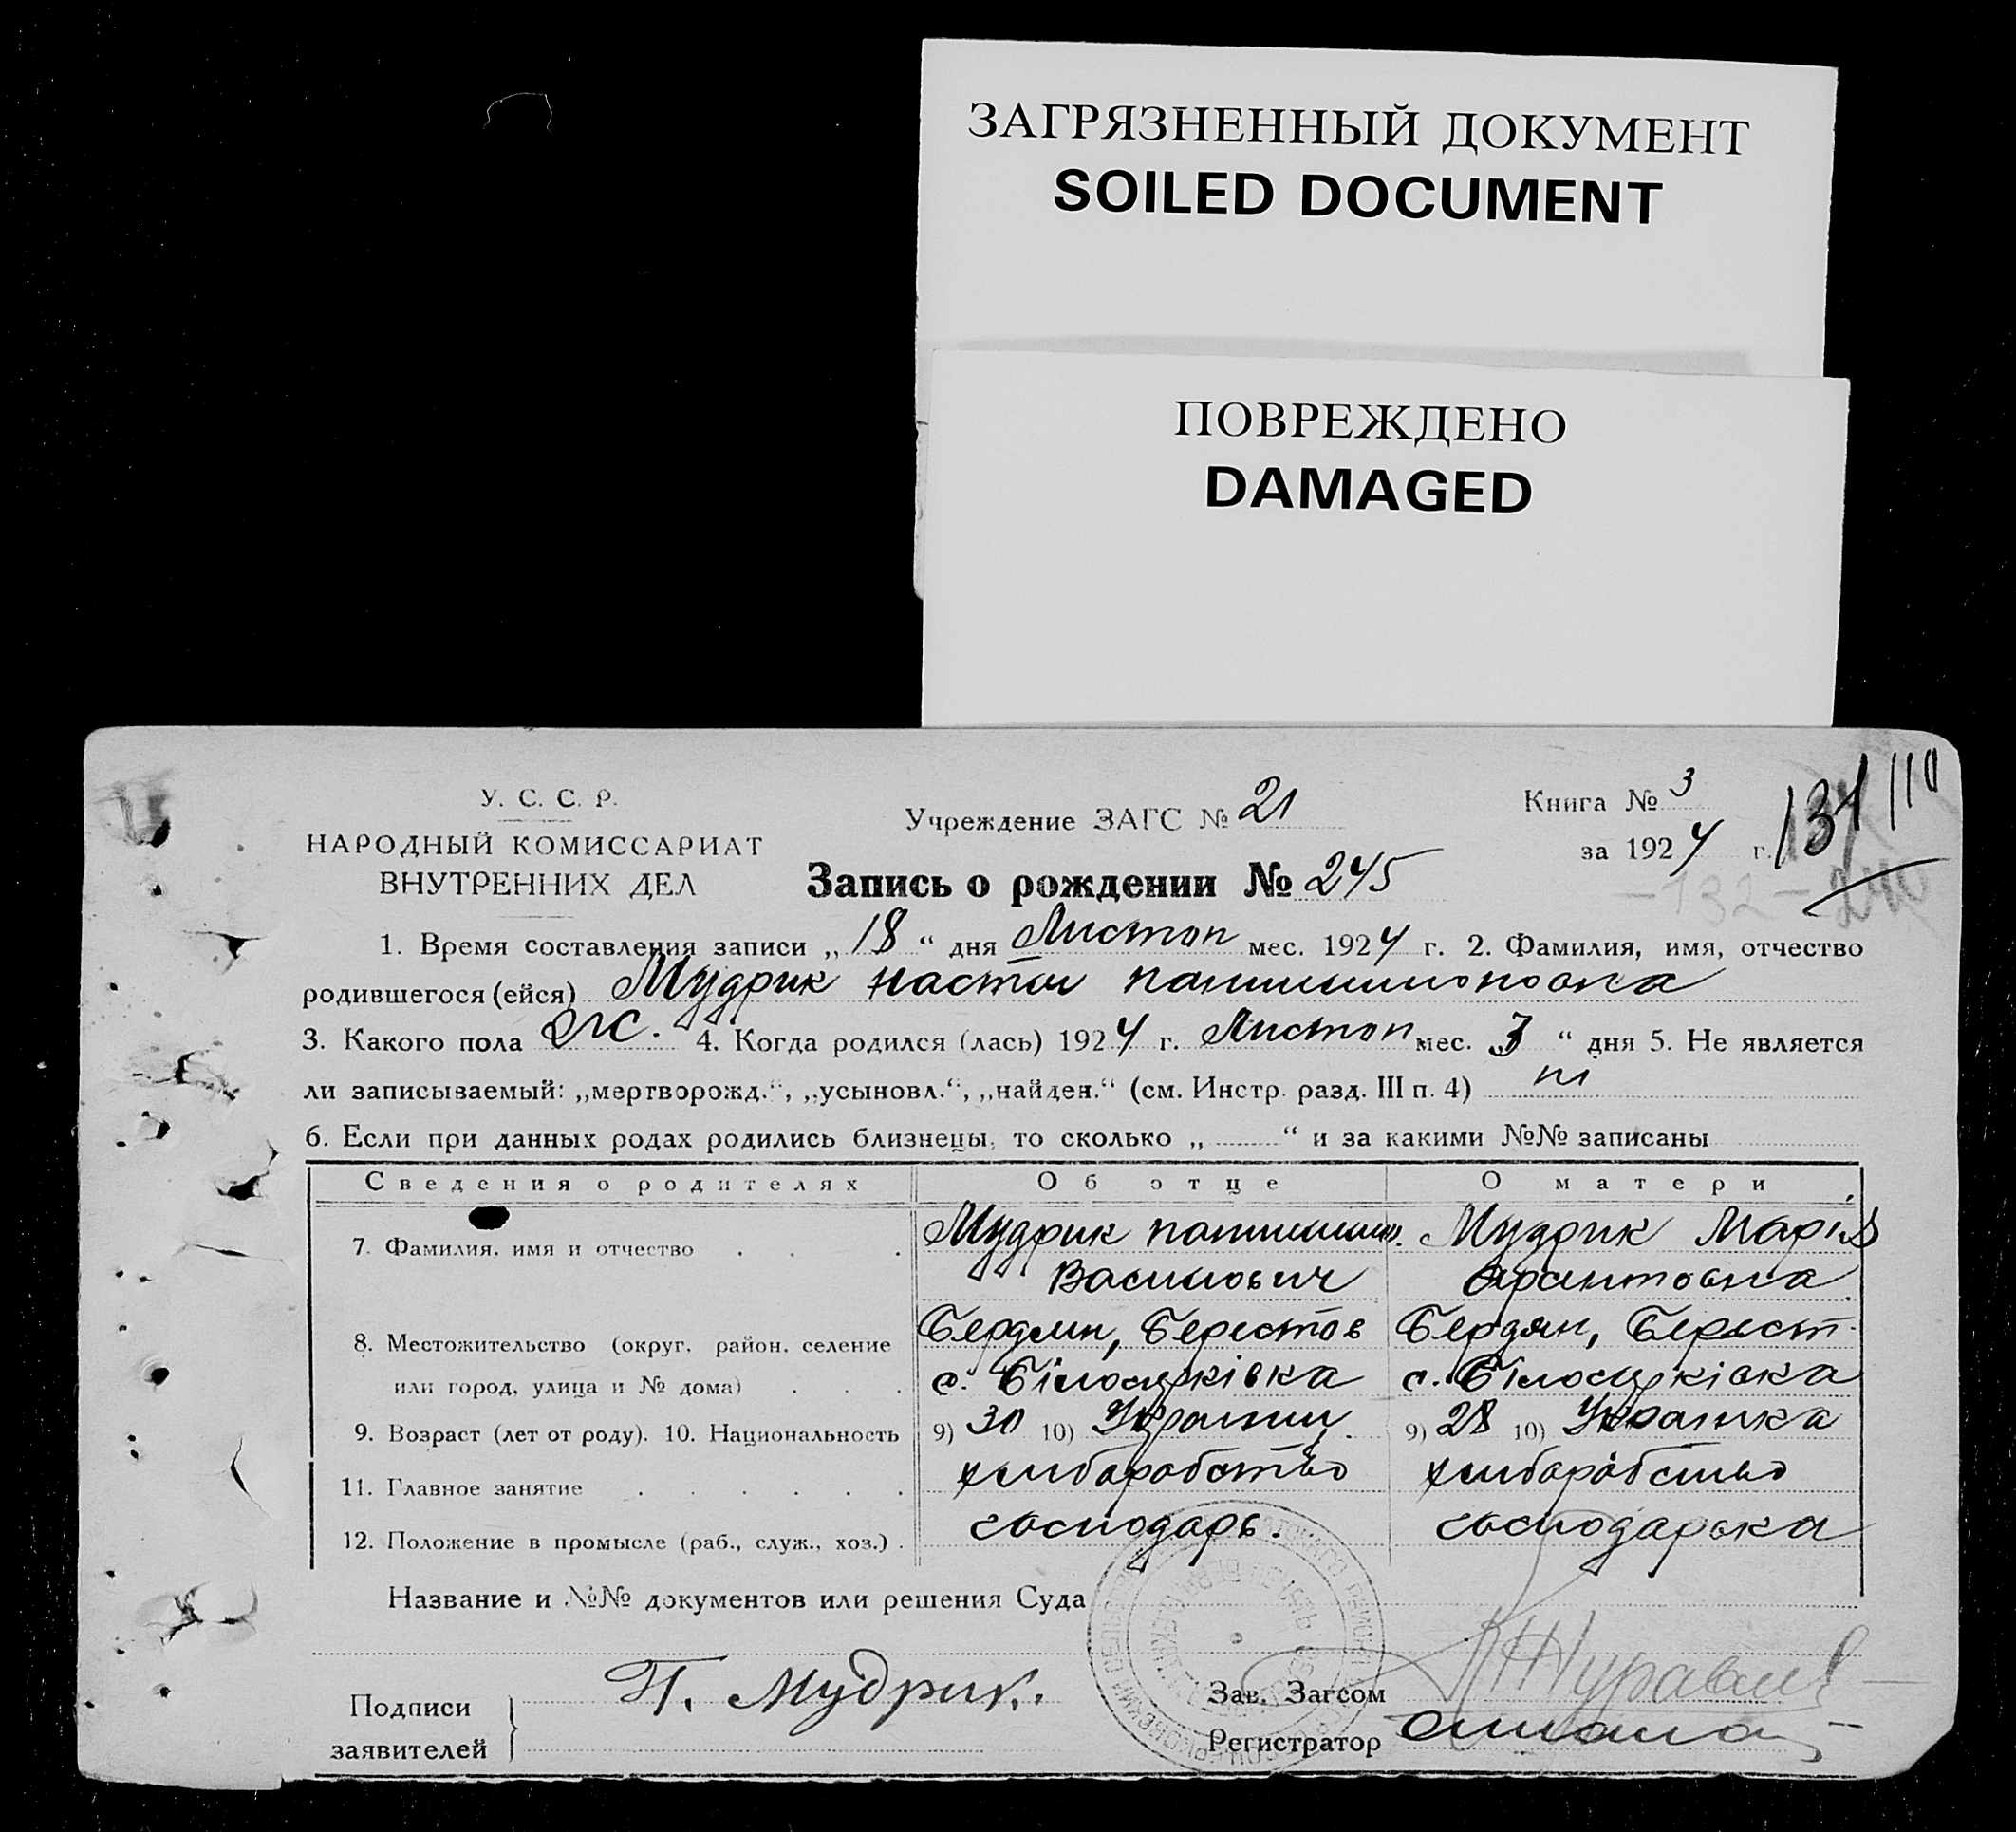 ЗАГРЯЗНЕННЫЙ ДОКУМЕНТ
SOILED DOCUMENT
ПОВРЕЖДЕНО
DAMAGED
У. С. С. Р.
НАРОДНЫЙ КОМИССАРИАТ
ВНУТРЕННИХ ДЕЛ
Учреждение ЗАГС № 21
Запись о рождении № 245
Книга № 3
за 1924 г.
134 110
-132-
1. Время составления записи „18“ дня Листоп мес. 1924 г. 2. Фамилия, имя, отчество
родившегося (ейся) Мудрик Настя
3. Какого пола ж. 4. Когда родился (лась) 1924 г. Листоп мес. „3“ дня 5. Не является
ли записываемый: „мертворожд.“, „усыновл.“, „найден.“ (см. Инстр. разд. III п. 4) ні
6. Если при данных родах родились близнецы, то сколько „ “ и за какими №№ записаны
Сведения о родителях Об отце О матери
7. Фамилия, имя и отчество Мудрик Мудрик Марія
Василович
8. Местожительство (округ, район, селение Бердян, Берестов Бердян, Берест.
или город, улица и № дома) с. Білоцерківка с. Білоцерківка
9. Возраст (лет от роду). 10. Национальность 9) 30 10) Украинец 9) 28 10) Украінка
11. Главное занятие хлиборобство хлиборобство
12. Положение в промысле (раб., служ., хоз.) господарь. господарька
Название и №№ документов или решения Суда
Подписи заявителей П. Мудрик.
Зав. Загсом
Регистратор